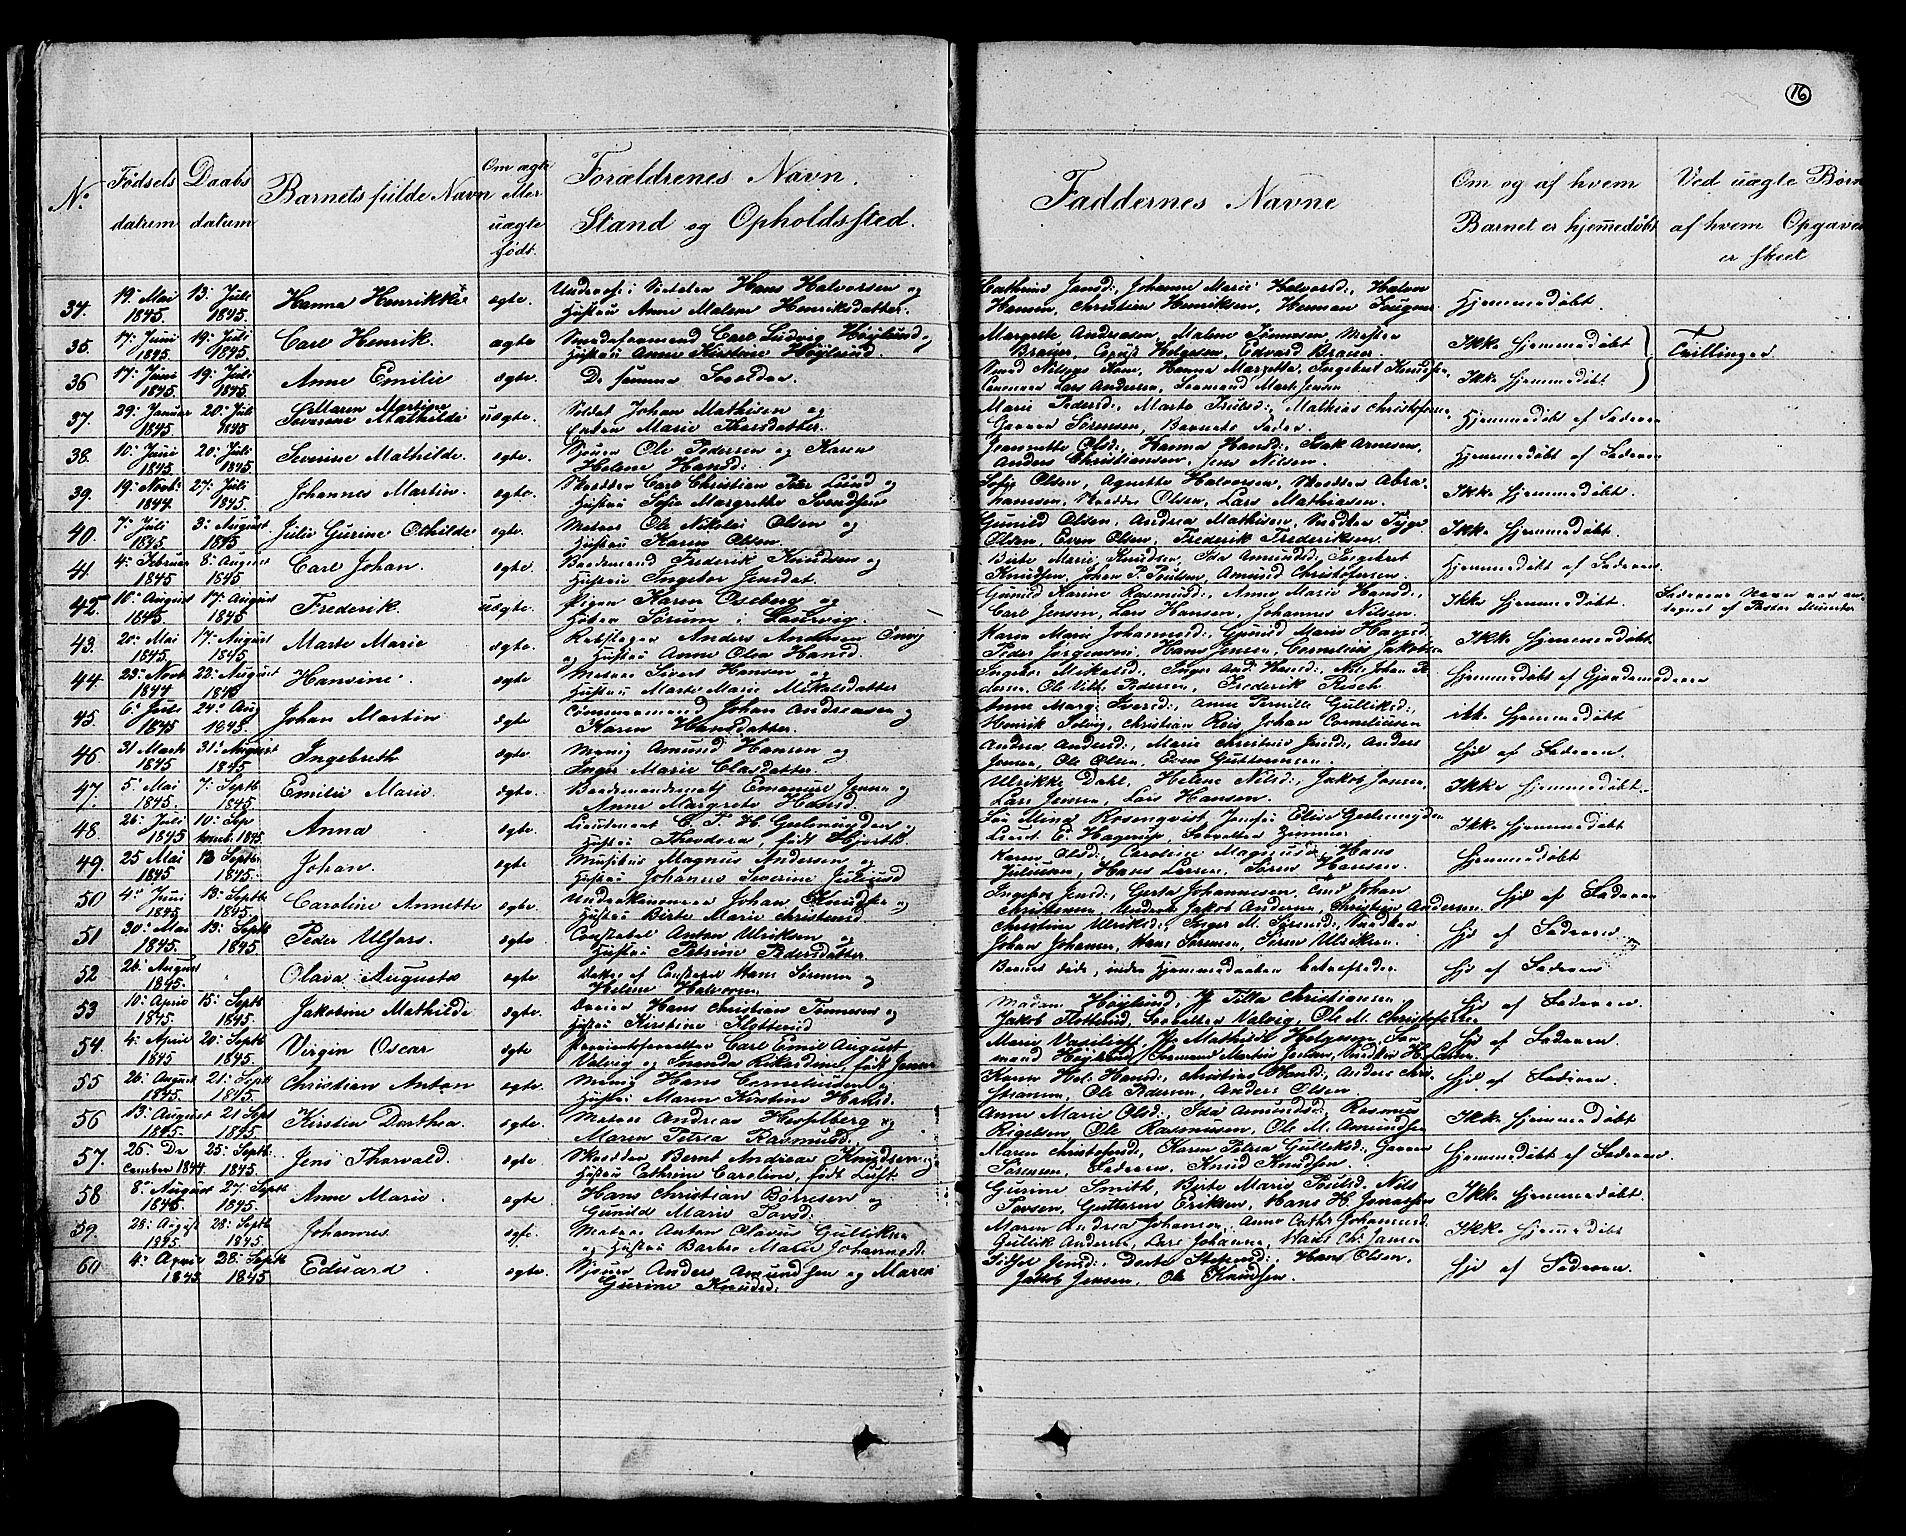 16
No Fødsels datum Daabs datum Barnets fulde Navn Om ægte eller uægte født. Forældrenes Navn. Stand og Opholdssted. Faddernes Navne Om og af hvem Barnet er hjemmedøbt Ved uægte Børn af hvem Opgaven er skeet
34. 19. Mai 1845. 13. Juli 1845. Hanna Henrikke ægte. Hans Halvorsen og Hustru Anne Malene Henriksdatter. Cathrine Jensd:, Johanne Marie Halvorsd:, Halvor Hansen, Christian Henriksen, Herman Hjemmedøbt.
35. 17. Juni 1845. 19. Juli 1845. Carl Henrik. ægte Carl Ludvig Höylund og Hustru Anne Kirstine Höylund. Margrete Andreasen, Malene Tönnesen, Mester Brauer, Helgesen, Edvard Brauer. Ikke hjemmedøbt Tvillinger
36 17. Juni 1845. 19. Juli 1845. Anne Emilie ægte. De samme Forældre. Hanna Margrethe, Ingebret Knudsen, Lars Andersen, Mart. Jensen Ikke hjemmedøbt.
37. 29. Januar 1845. 20. Juli 1845. Maren Martine Severine Mathilde uægte. Soldat Johan Mathisen og Enken Marie Thorsdatter. Marie Pedersd:, Marte Trulsd:, Mathias Christofersen, Sörensen, Barnets Fader. Hjemmedøbt af Faderen
38. 10. Juni 1845. 20. Juli 1845 Severine Mathilde. ægte. Ole Pedersen og Karen Helene Hansd: Jeannette Olsd:, Hanna Hansd:, Isak Arnesen, Anders Christiansen, Jens Nilsen. Hjemmedøbt af Faderen
39. 19. Novb. 1844. 27. Juli 1845. Johannes Martin. ægte. Skrædder Carl Christian Lund og Hustru Sofie Margrethe Svendsen Sofie Olsen, Agnette Halvorsen, Skrædder Abrahamsen, Skrædder Olsen, Lars Mathiasen. Ikke hjemmedøbt.
40. 7. Juli 1845. 3. August 1845 Julie Gurine Othilde. ægte. Matros Ole Nikolai Olsen og Hustru Karen Olsen. Gunild Olsen, Andrea Mathisen, Olsen, Even Olsen, Frederik Frederiksen. Ikke hjemmedøbt.
41. 4. Februar 1845 8. August 1845. Carl Johan. ægte. Baadsmand Frederik Knudsen og Hustru Ingebor Jensdat. Birte Marie Knudsen, Ida Amundsd:, Ingebret Knudsen, Johan P. Poulsen, Amund Christofersen. Hjemmedøbt af Faderen
42. 10. August 1845. 17. August 1845 Frederik. uægte. Pigen Karen Oseberg og Sörum i Laurvig. Gunild Karine Rasmusd:, Anne Marie Hansd:, Carl Jensen, Lars Hansen, Johannes Nilsen. Ikke hjemmedøbt. Faderens Navn var antegnet af Pastor Münster
43. 20. Mai 1845. 17. August 1845 Marte Marie ægte. Rebslager Anders Andersen og Hustru Anne Olea Hansd Karen Marie Johannesd:, Gunild Marie Hansd. Peder Jörgensen, Hans Jensen, Cornelius Jakobsen Ikke hjemmedøbt.
44. 23. Novb. 1844 22. August 1845 Hansine. ægte Matros Sivert Hansen og Hustru Marte Marie Mikelsdatter Ingebor Mikelsd:, Inger And. Hansd:, Nils Johan Pedersen, Ole Vilh. Pedersen, Frederik Resch Hjemmedøbt af Gjordemoderen
45. 6. Juli 1845 24. Aug 1845. Johan Martin ægte Tömmermand Johan Andreasen og Karen Hansdatter. Anne Marg: Iversd:, Anne Pernille Gulliksd:, Henrik Christian Reis, Johan Corneliusen ikke hjemmedøbt
46. 31 Marts 1845 31. August 1845 Ingebreth ægte. Amund Hansen og Inger Marie Clasdatter. Andrea Andersd:, Marie Christine Jensd:, Anders Jensen, Ole Olsen, Even Guttormsen. hjd af Faderen.
47. 5. Mai 1845. 7. Septb. 1845. Emilie Marie. ægte. Baadsmandsmath Emanuel Jensen og Anne Margrete Hansd. Ulrikke Dahl, Helene Nilsd:, Jakob Jansen, Lars Jensen, Lars Hansen. Ikke hjemmedøbt.
48. 26. Juli 1845 10. September 1845. Anna ægte. Lieutenant C. F. H. Geelmuyden, Hustru Theodora, født Hjorth. Mina Rosenqvist, Josefa Elise Geelmuyden, Lieut. E. Hagerup, Forvalter Zimmer Ikke hjemmedøbt
49. 25 Mai 1845 13. Septb. 1845. Johan. ægte Musikus Magnus Andersen og Hustru Johanne Severine Juliusd Karen Olsd:, Caroline Magnusd:, Hans Juliusen, Hans Larsen, Sören Hansen. Hjemmedøbt
50 4. Juni 1845. 13. Septb. 1845. Caroline Annette ægte. Underkanoneer Johan Knudsen og Hustru Birte Marie Christensd. Ingebor Jensd:, Gurta Johannesen, Johan Christensen, Jakob Andersen, Christian Andersen. hjd af Faderen
51 30. Mai 1845. 13. Septb. 1845. Peder Ulfers. ægte Constabel Anton Ulriksen og Hustru Petrine Pedersdatter. Christine Ulriksd:, Inger M. Sörensd:, Johan Johansen, Hans Sörensen, Sören Ulriksen. hjd af Faderen.
52 26. August 1845. " Olava Augusta ægte Datter af Constabel Hans Sörensen og Helene Halvorsen. Barnet døde, inden Hjemmedaaben bekræftedes. hjd af Faderen
53 10. April 1845. 15. Septb. 1845. Jakobine Mathilde ægte. Hans Christian Tönnesen og Hustru Kirstine Flottorud Madam Höylund, Jf. Tilla Christiansen, Jakob Flottorud, Forvalter Valvig, Ole M. Christofersen hjd af Faderen.
54. 4. April 1845 20. Septb. 1845. Virgin Oscar ægte Proviantforvalter Carl Emil August Valvig og Rikardine, født Jensen Marie Vasilieff, Jf. Mathilde Helgesen, Formand Höylund, Formand Martin Jensen, H. Larsen. hjd af Faderen.
55 26. August 1845. 21. Septb. 1845. Christian Anton ægte. Hans Corneliusen og Hustru Maren Kirstine Hansd. Karen Hel. Hansd:, Christine Hansd:, Anders Christiansen, Ole Pedersen, Anders Olsen hjd af Faderen.
56 13. August 1845. 21 Sept 1845. Kirstin Dorthea. ægte. Matros Andreas Hesselberg og Maren Petrea Rasmusd. Anne Marie Olsd:, Ida Amundsd:, Rasmus Rigelsen, Ole Rasmussen, Ole M. Amundsen Ikke hjemmedøbt
57. 26. December 1844. 25. Septb. 1845. Jens Thorvald. ægte Skrædder Bernt Andreas Knudsen og Hustru Cathrine Caroline, født Luft. Maren Christofersd:, Karen Petrea Gulliksd:, Sörensen, Faderen, Knud Knudsen. Hjemmedøbt af Faderen
58 8. August 1845. 27. Septb. 1845. Anne Marie. ægte Hans Christian Borresen og Gunild Marie Povsd: Gurine Smith, Birte Marie Poulsd. Nils Povsen, Guttorm Eriksen, Hans H. Jonassen Ikke hjemmedøbt.
59. 28. August 1845. 28. Septb. 1845. Johannes ægte. Matros Anton Olavius Gulliksen og Hustru Barbra Marie Johannesd: Maren Andrea Johansen, Anne Cathr. Johannesd. Gullik Andersen, Lars Johansen, Hans Chr. Jansen Ikke hjemmedøbt
60. 4. April 1845 28. Septb. 1845 Edvard. ægte. Anders Amundsen og Maren Gurine Knudsd: Sidsel Jensd:, Dorte Hans Olsen, Jakob Jensen, Ole Knudsen. hjd af Faderen.